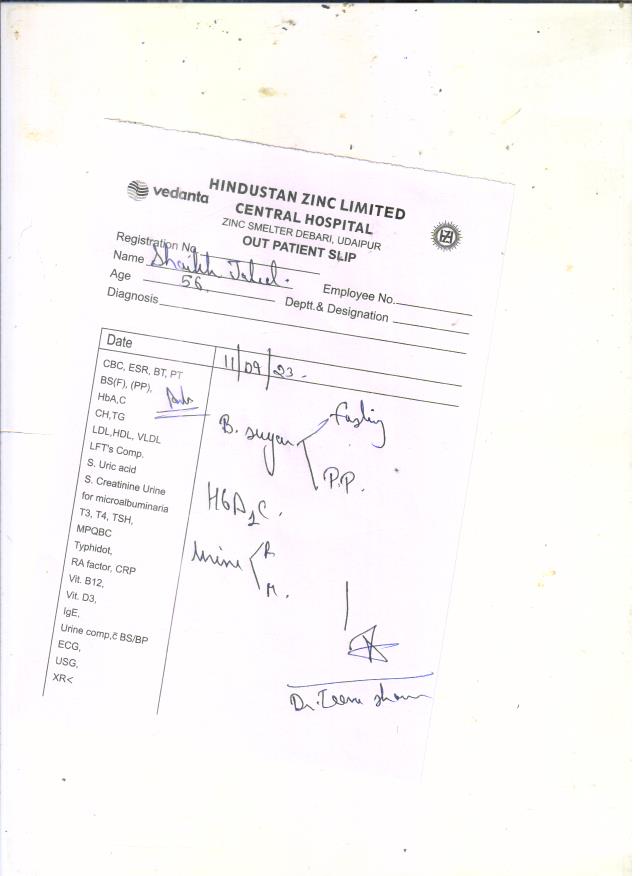 vedanta
HINDUSTAN ZINC LIMITED
CENTRAL HOSPITAL
ZINC SMELTER DEBARI, UDAIPUR
OUT PATIENT SLIP
Registration No
Name Shaikh
Employee No.
Age 56
Deptt.& Designation
Diagnosis
Date 11/09/23
CBC, ESR, BT, PT
BS(F), (PP),
HbA,C
CH,TG
LDL,HDL, VLDL
LFT's Comp.
S. Uric acid
S. Creatinine Urine
for microalbuminaria
T3, T4, TSH,
MPQBC
Typhidot,
RA factor, CRP
Vit. B12,
Vit. D3,
IgE,
Urine comp,c̄ BS/BP
ECG,
USG,
XR<
B. sugar
Fasting
P.P.
HbA1C.
Urine
R
M.
Dr.